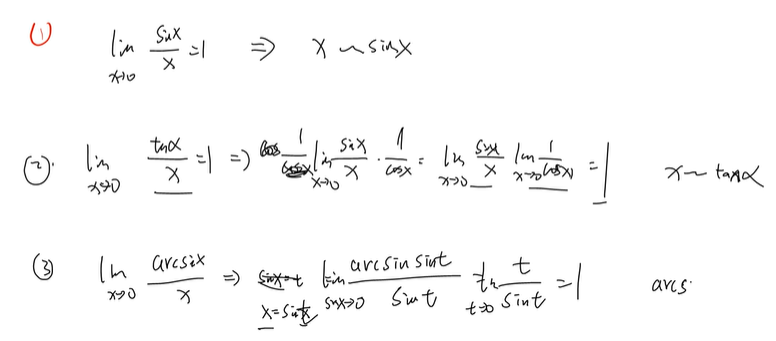 (1) lim x→0 sinx/x =1 ⇒ x ~ sinx
(2). lim x→0 tanx/x =1 ⇒ lim x→0 sinx/x · 1/cosx = lim x→0 sinx/x lim x→0 1/cosx = 1 x ~ tanx
(3) lim x→0 arcsix/x ⇒ x=sint lim sinx→0 arcsin sint/sint lim t→0 t/sint =1 arcs